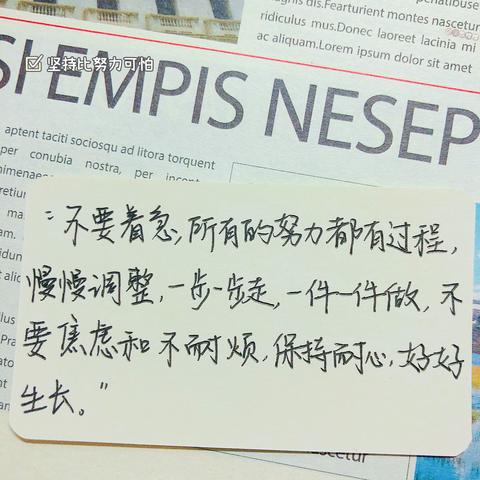 penatibus
dis.Fearturient montes nascetur
ridiculus mus.Donec laoreet lacinia mi
ac aliquam.Lorem ipsum dolor sit amet
坚持比努力可怕
SI EMPIS NESEP
aptent taciti sociosqu ad litora torquent
per conubia nostra, per
“不要着急,所有的努力都有过程,
慢慢调整,一步一步走,一件一件做,不
要焦虑和不耐烦,保持耐心,好好
生长。”